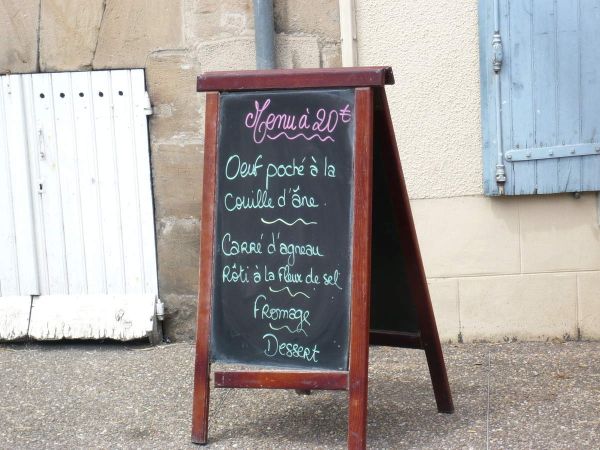 Menu à 20€
Oeuf poché à la
Couille d'âne.
Carré d'agneau
Rôti à la Fleur de sel
Fromage
Dessert